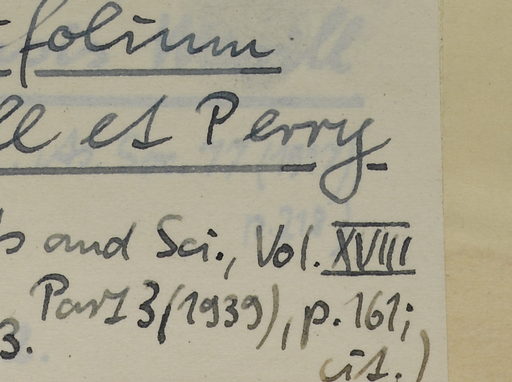 folium
et Perry
and Sci., Vol. XVIII
Part 3 (1939), p. 161;
3.
cit.)